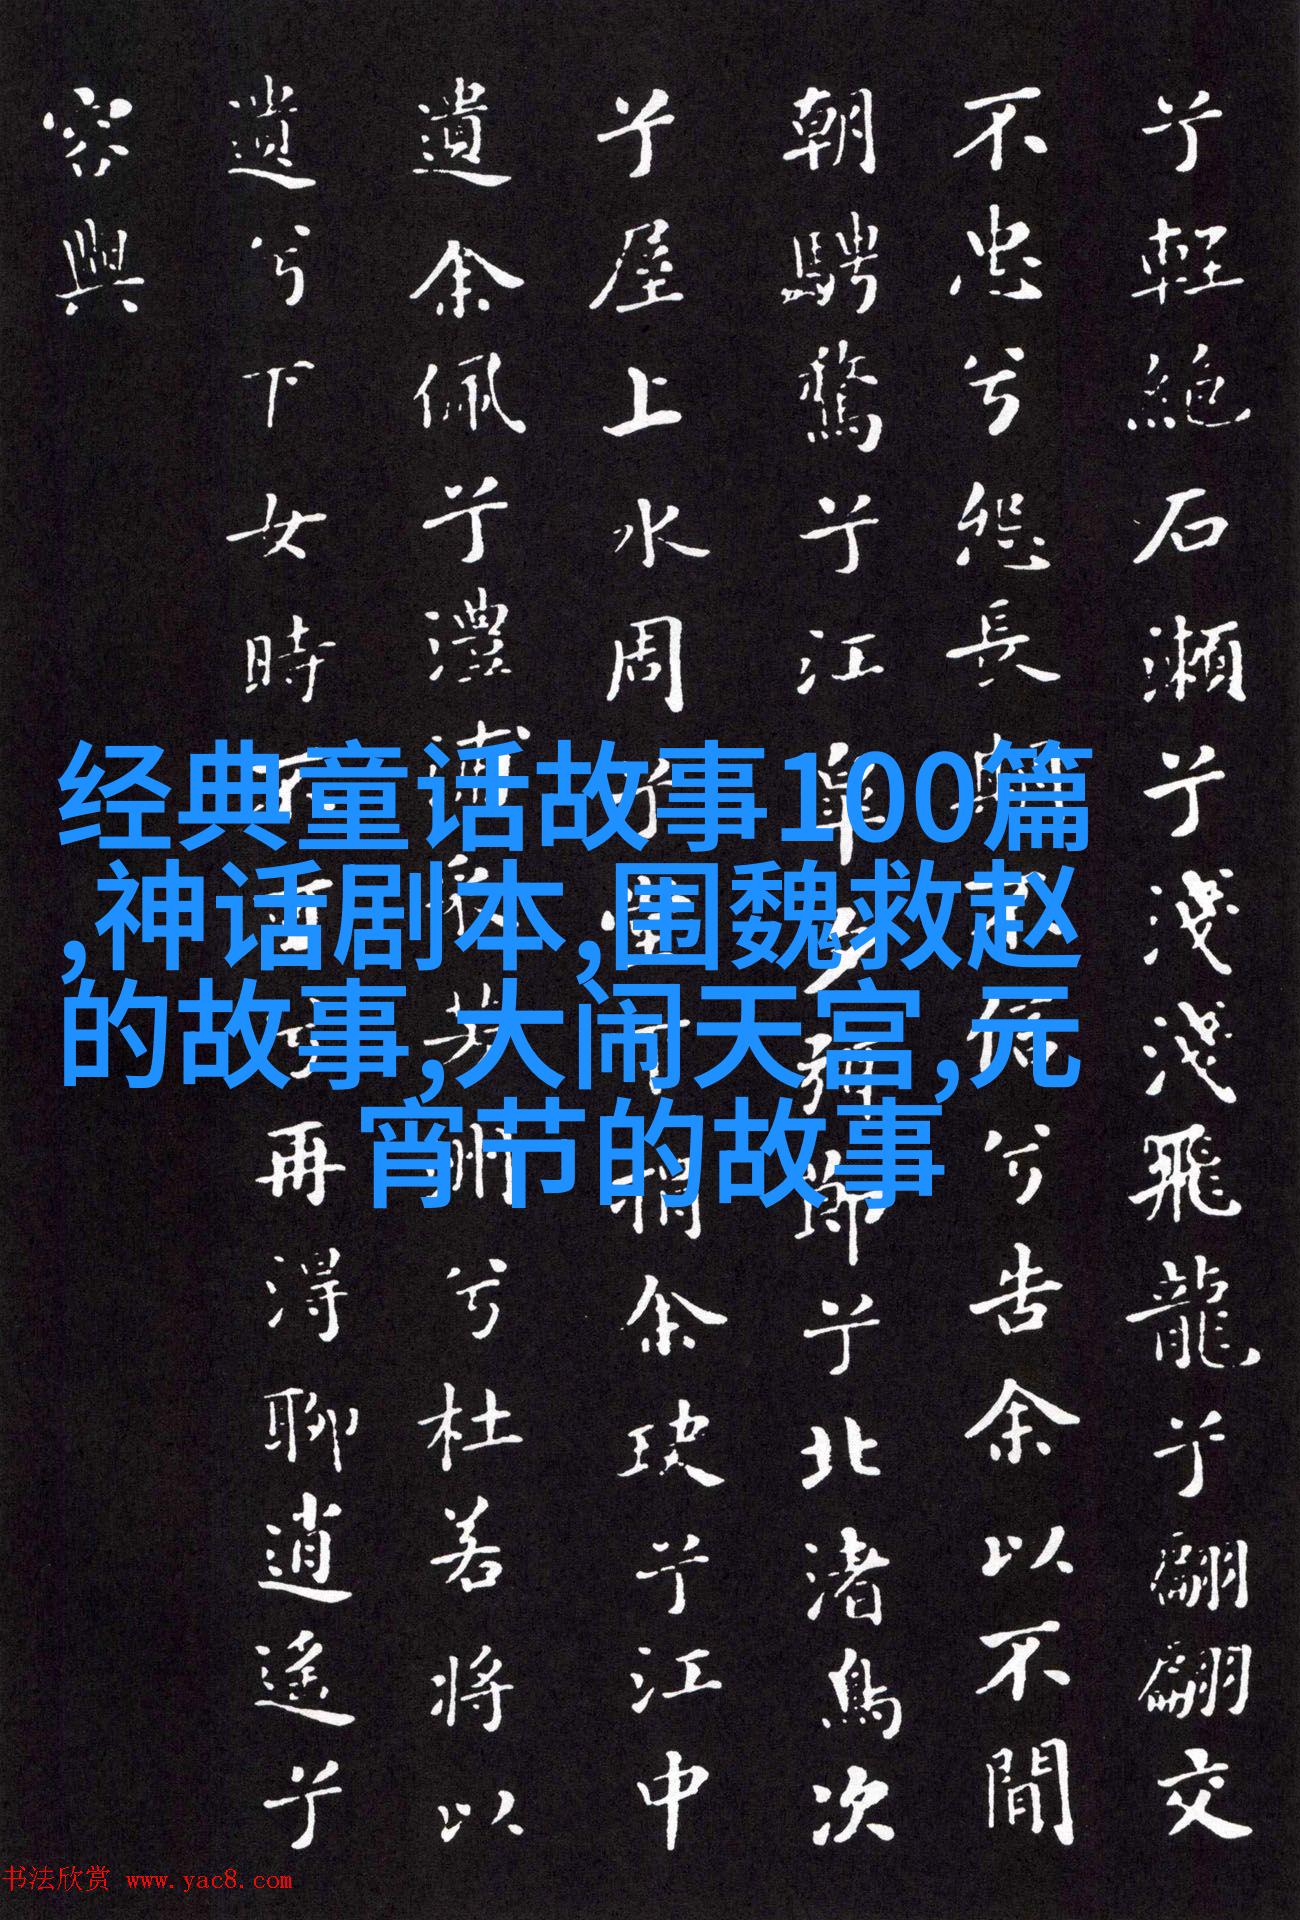 兮輕絕石瀨兮淺淺飛龍兮翩翩交
不忠兮怨長期不信兮告余以不間
朝騁騖兮江皐夕弭節兮北渚鳥次
兮屋上水周兮堂下捐余玦兮江中
遺余佩兮澧浦采芳洲兮杜若將以
遺兮下女時不可兮再得聊逍遙兮
容與
经典童话故事100篇
,神话剧本,围魏救赵
的故事,大闹天宫,元
宵节的故事
书法欣赏 www.yac8.com